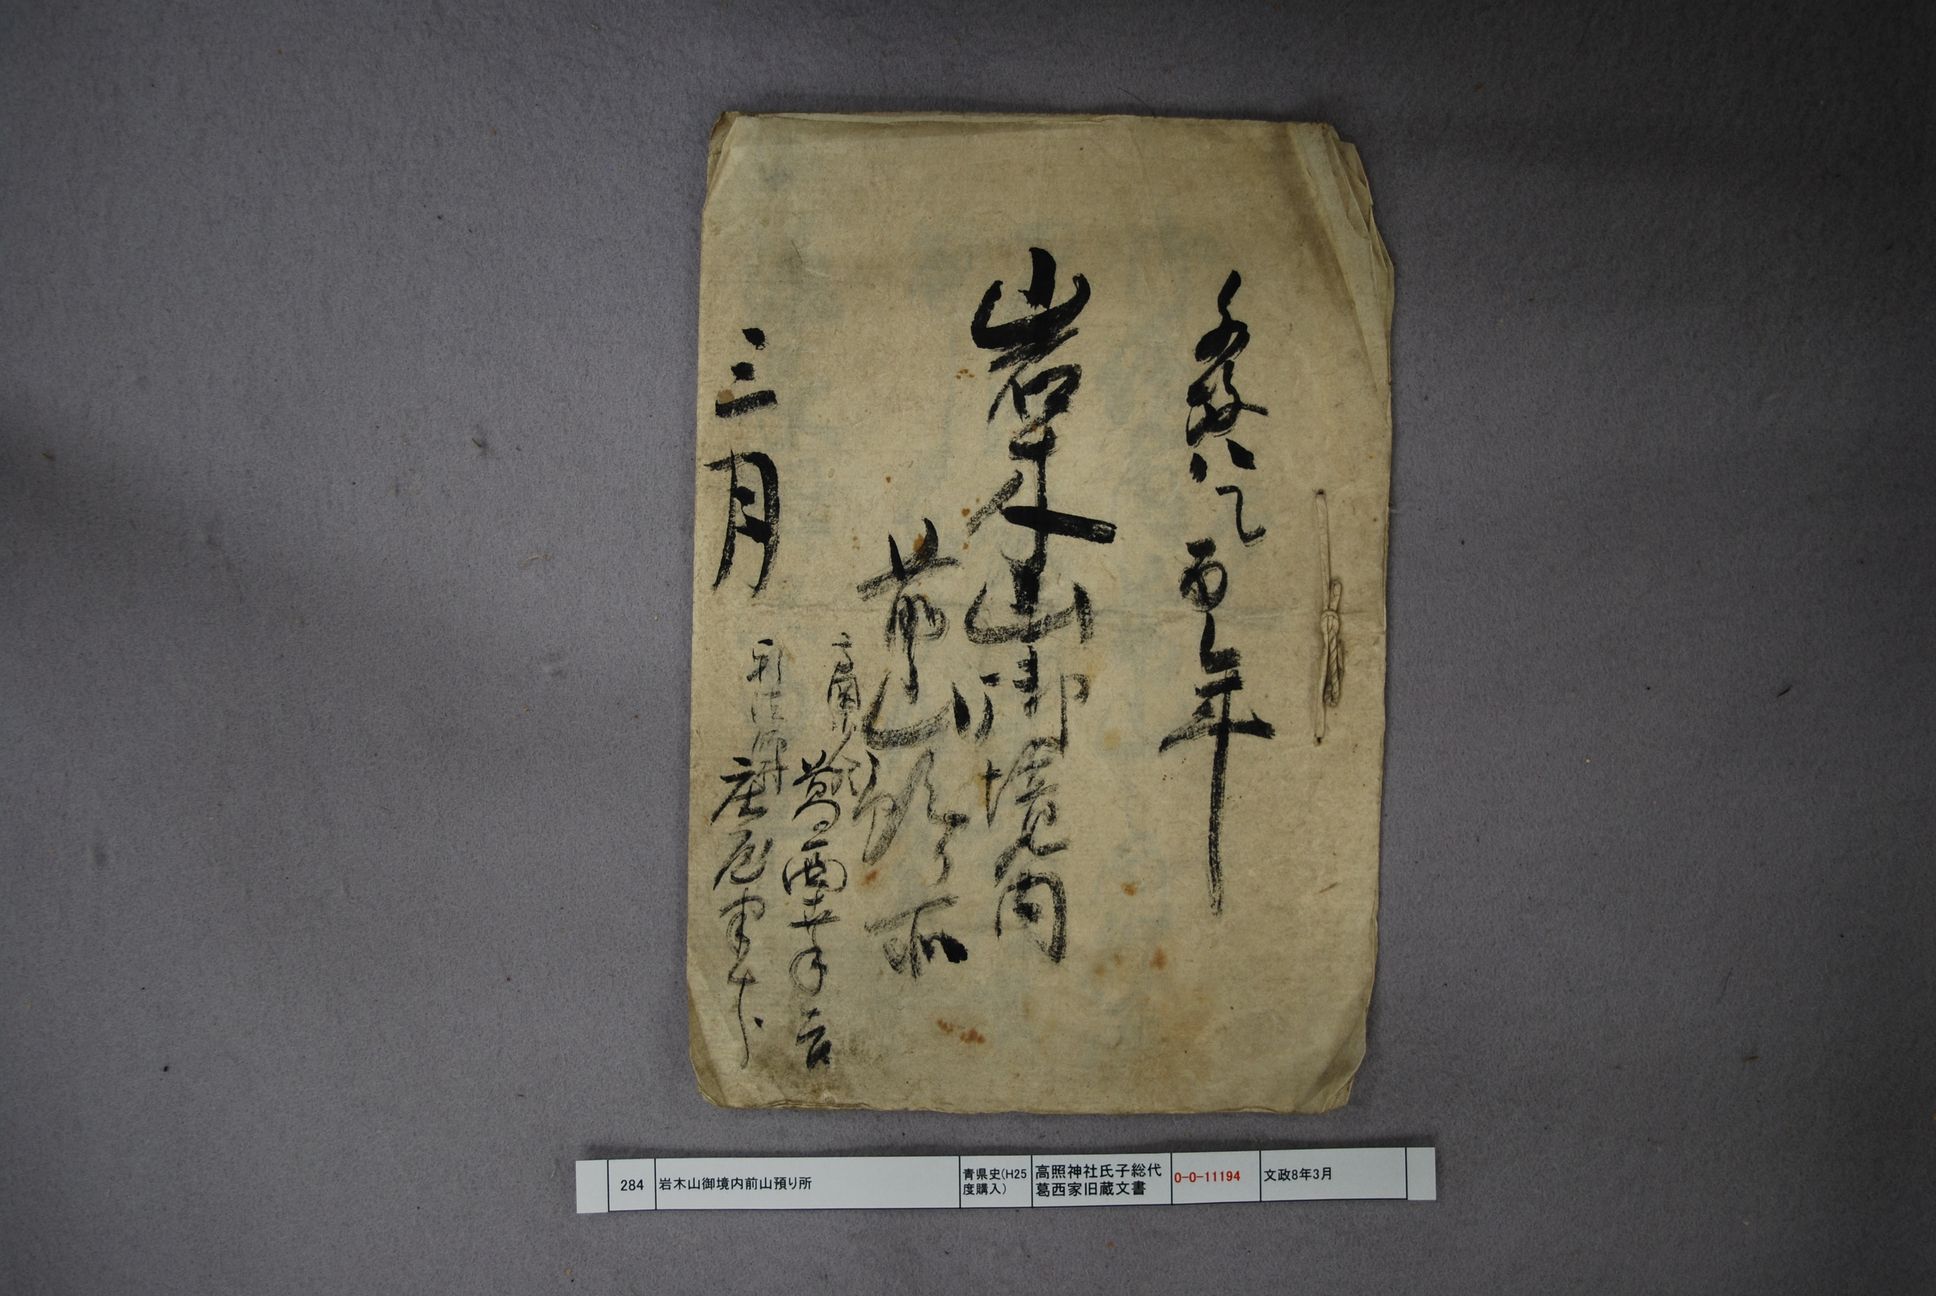 文政八乙酉年
岩木山御境内
前山預り所
三月
葛西
庄屋
284
岩木山御境内前山預り所
青県史(H25
度購入)
高照神社氏子総代
葛西家旧蔵文書
0-0-11194
文政8年3月